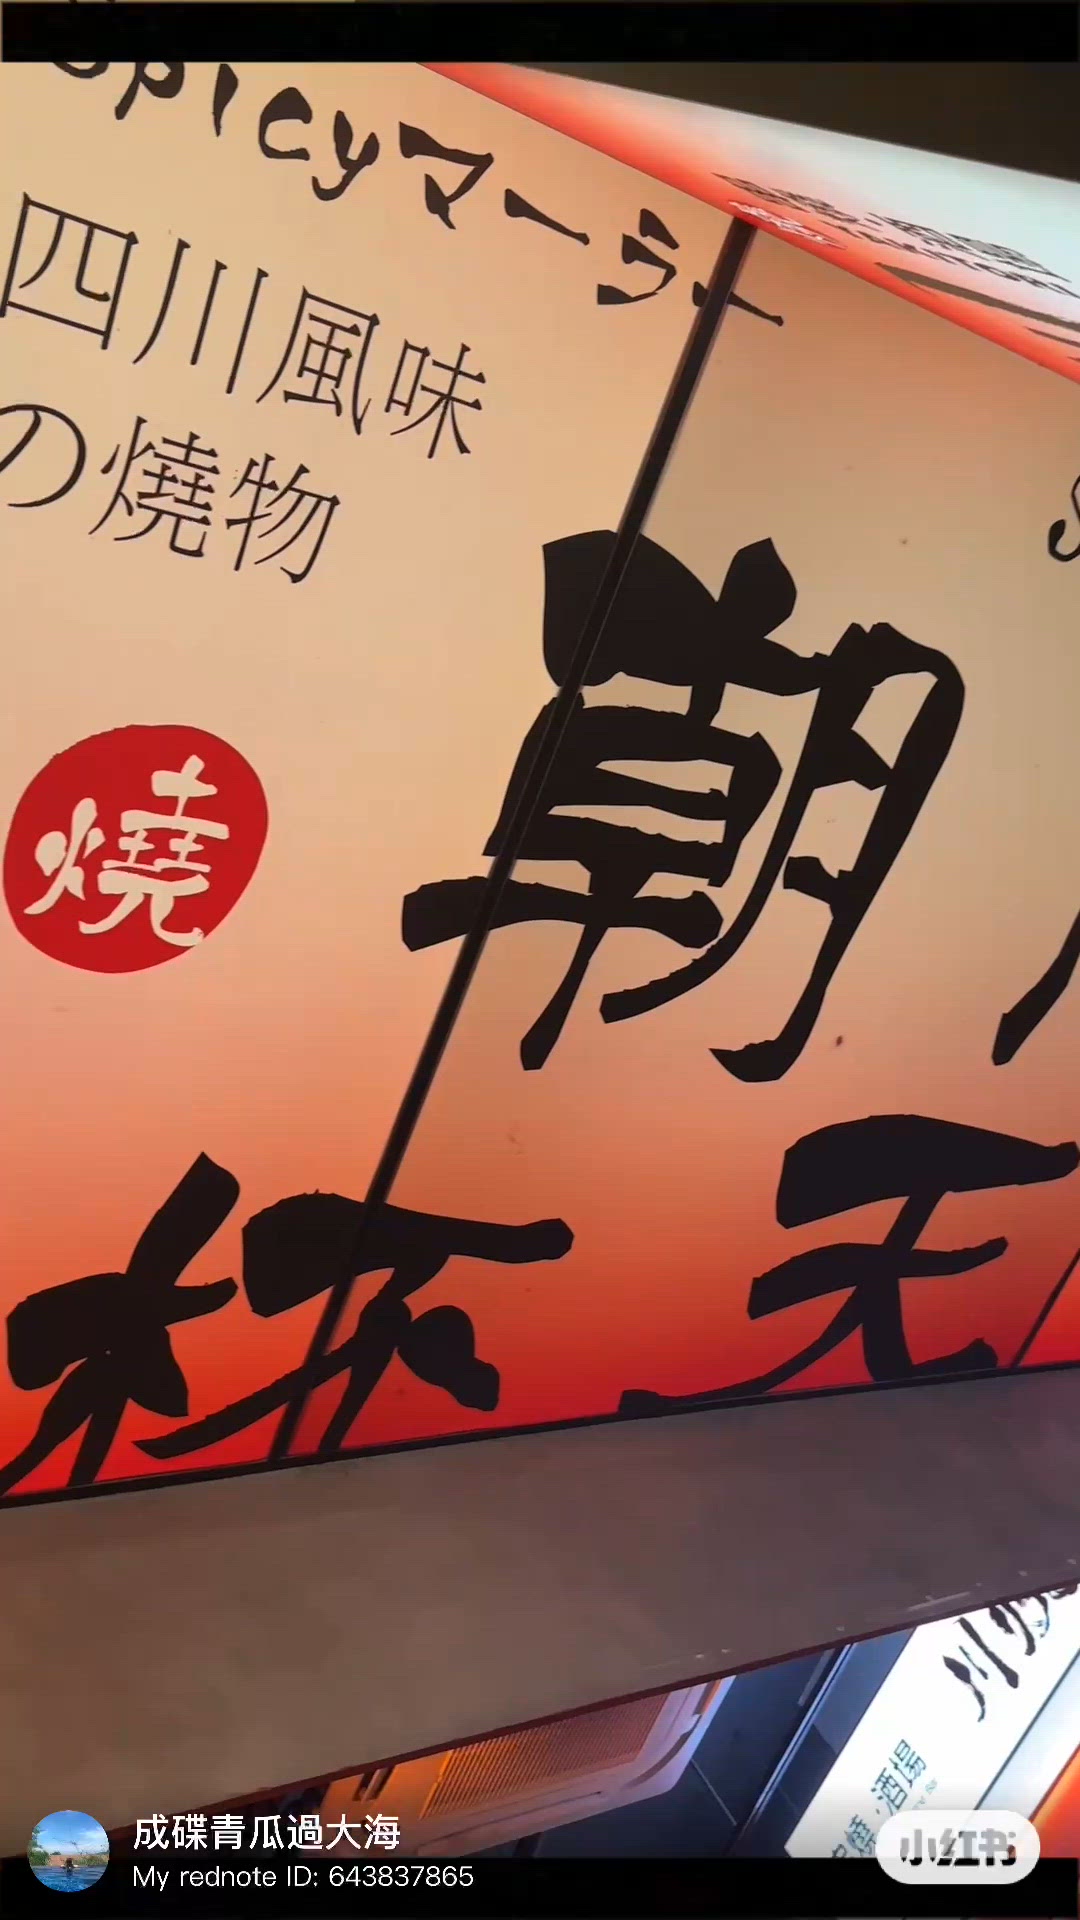 Spicyマーラー
四川風味
の燒物
朝
燒
杯 天
川
酒場
成碟青瓜過大海
My rednote ID: 643837865
小红书